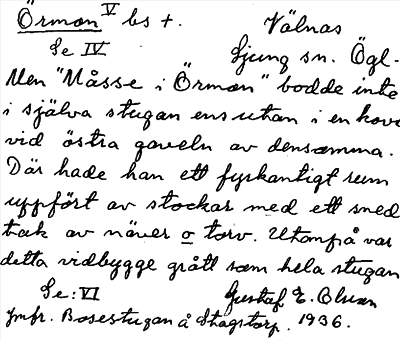 Örman V bs +. Välnas
Se IV Ljung sn. Ögl.
Men "Måsse i Örman" bodde inte
i själva stugan ens utan i en kova
vid östra gaveln av densamma.
Där hade han ett fyrkantigt rum
uppfört av stockar med ett sned
tak av näver o torv. Utanpå var
detta vidbygge grått som hela stugan
Se: VI Gustaf E. Olsson
Jmfr. Bosestugan å Skogstorp. 1936.